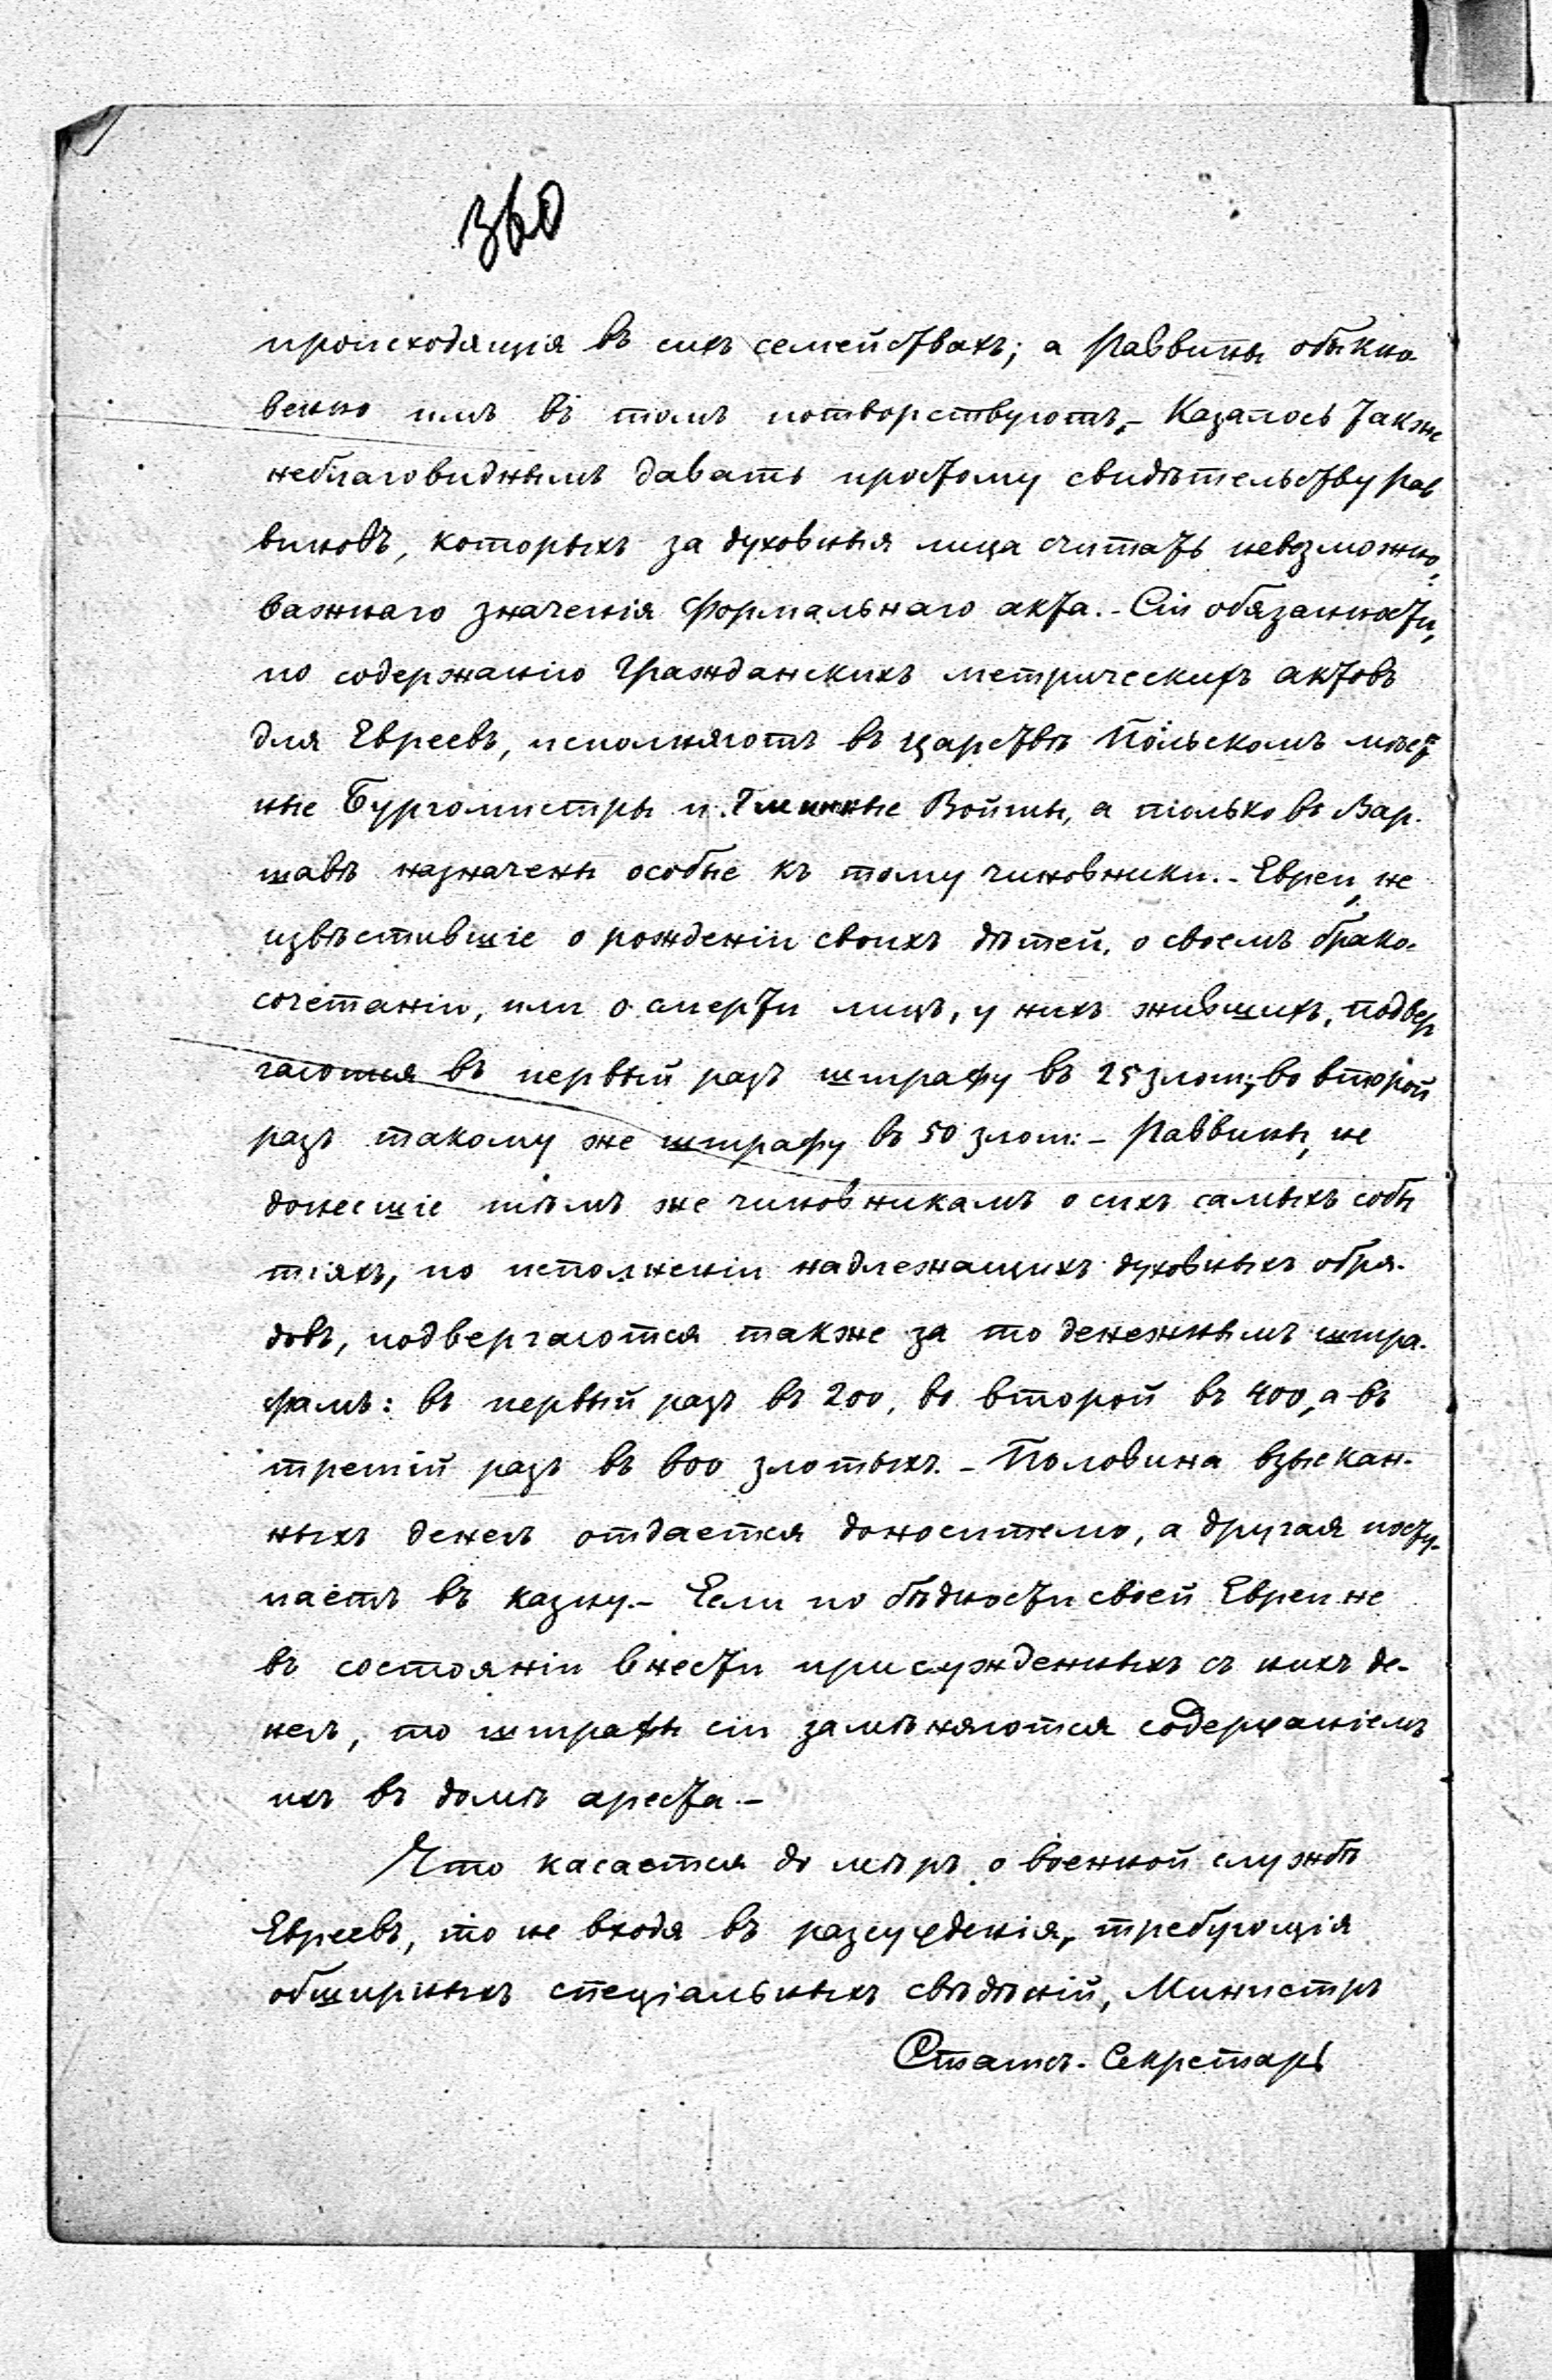 360
происходящія въ сихъ семействахъ; а Раввины обыкно-
венно имъ въ томъ потворствуютъ,- Казалось также
неблаговиднымъ давать простому свидѣтельству Рав
виновъ, которыхъ за духовныя лица считать невозможно,
важнаго значенія формальнаго акта.- Сіи обязанности,
по содержанію Гражданскихъ метрическихъ актовъ
для Евреевъ, исполняютъ въ царствѣ Польскомъ мѣст
ные Бургомистры и Гминные Войты, а только въ Вар-
шавѣ назначены особые къ тому чиновники.- Евреи, не
извѣстившіе о рожденіи своихъ дѣтей, о своемъ брако-
сочетаніи, или о смерти лицъ, у нихъ жившихъ, подвер
гаются въ первый разъ штрафу въ 25 злот; во второй
разъ такому же штрафу въ 50 злот:- Раввины, не
донесшіе тѣмъ же чиновникамъ о сихъ самыхъ собы
тіяхъ, по исполненіи надлежащихъ духовныхъ обря-
довъ, подвергаются также за то денежнымъ штра-
фамъ: въ первый разъ въ 200, во второй въ 400, а въ
третій разъ въ 600 злотыхъ.- Половина взыскан-
ныхъ денегъ отдается доносителю, а другая посту-
паетъ въ казну.- Если по бѣдности своей Евреи не
въ состояніи внести присужденныхъ съ нихъ де-
негъ, то штрафы сіи замѣняются содержаніемъ
ихъ въ домѣ ареста.-
Что касается до мѣръ о военной службѣ
Евреевъ, то не входя въ разсужденія, требующія
обширныхъ спеціальныхъ свѣдѣній, Министръ
Статсъ-Секретарь